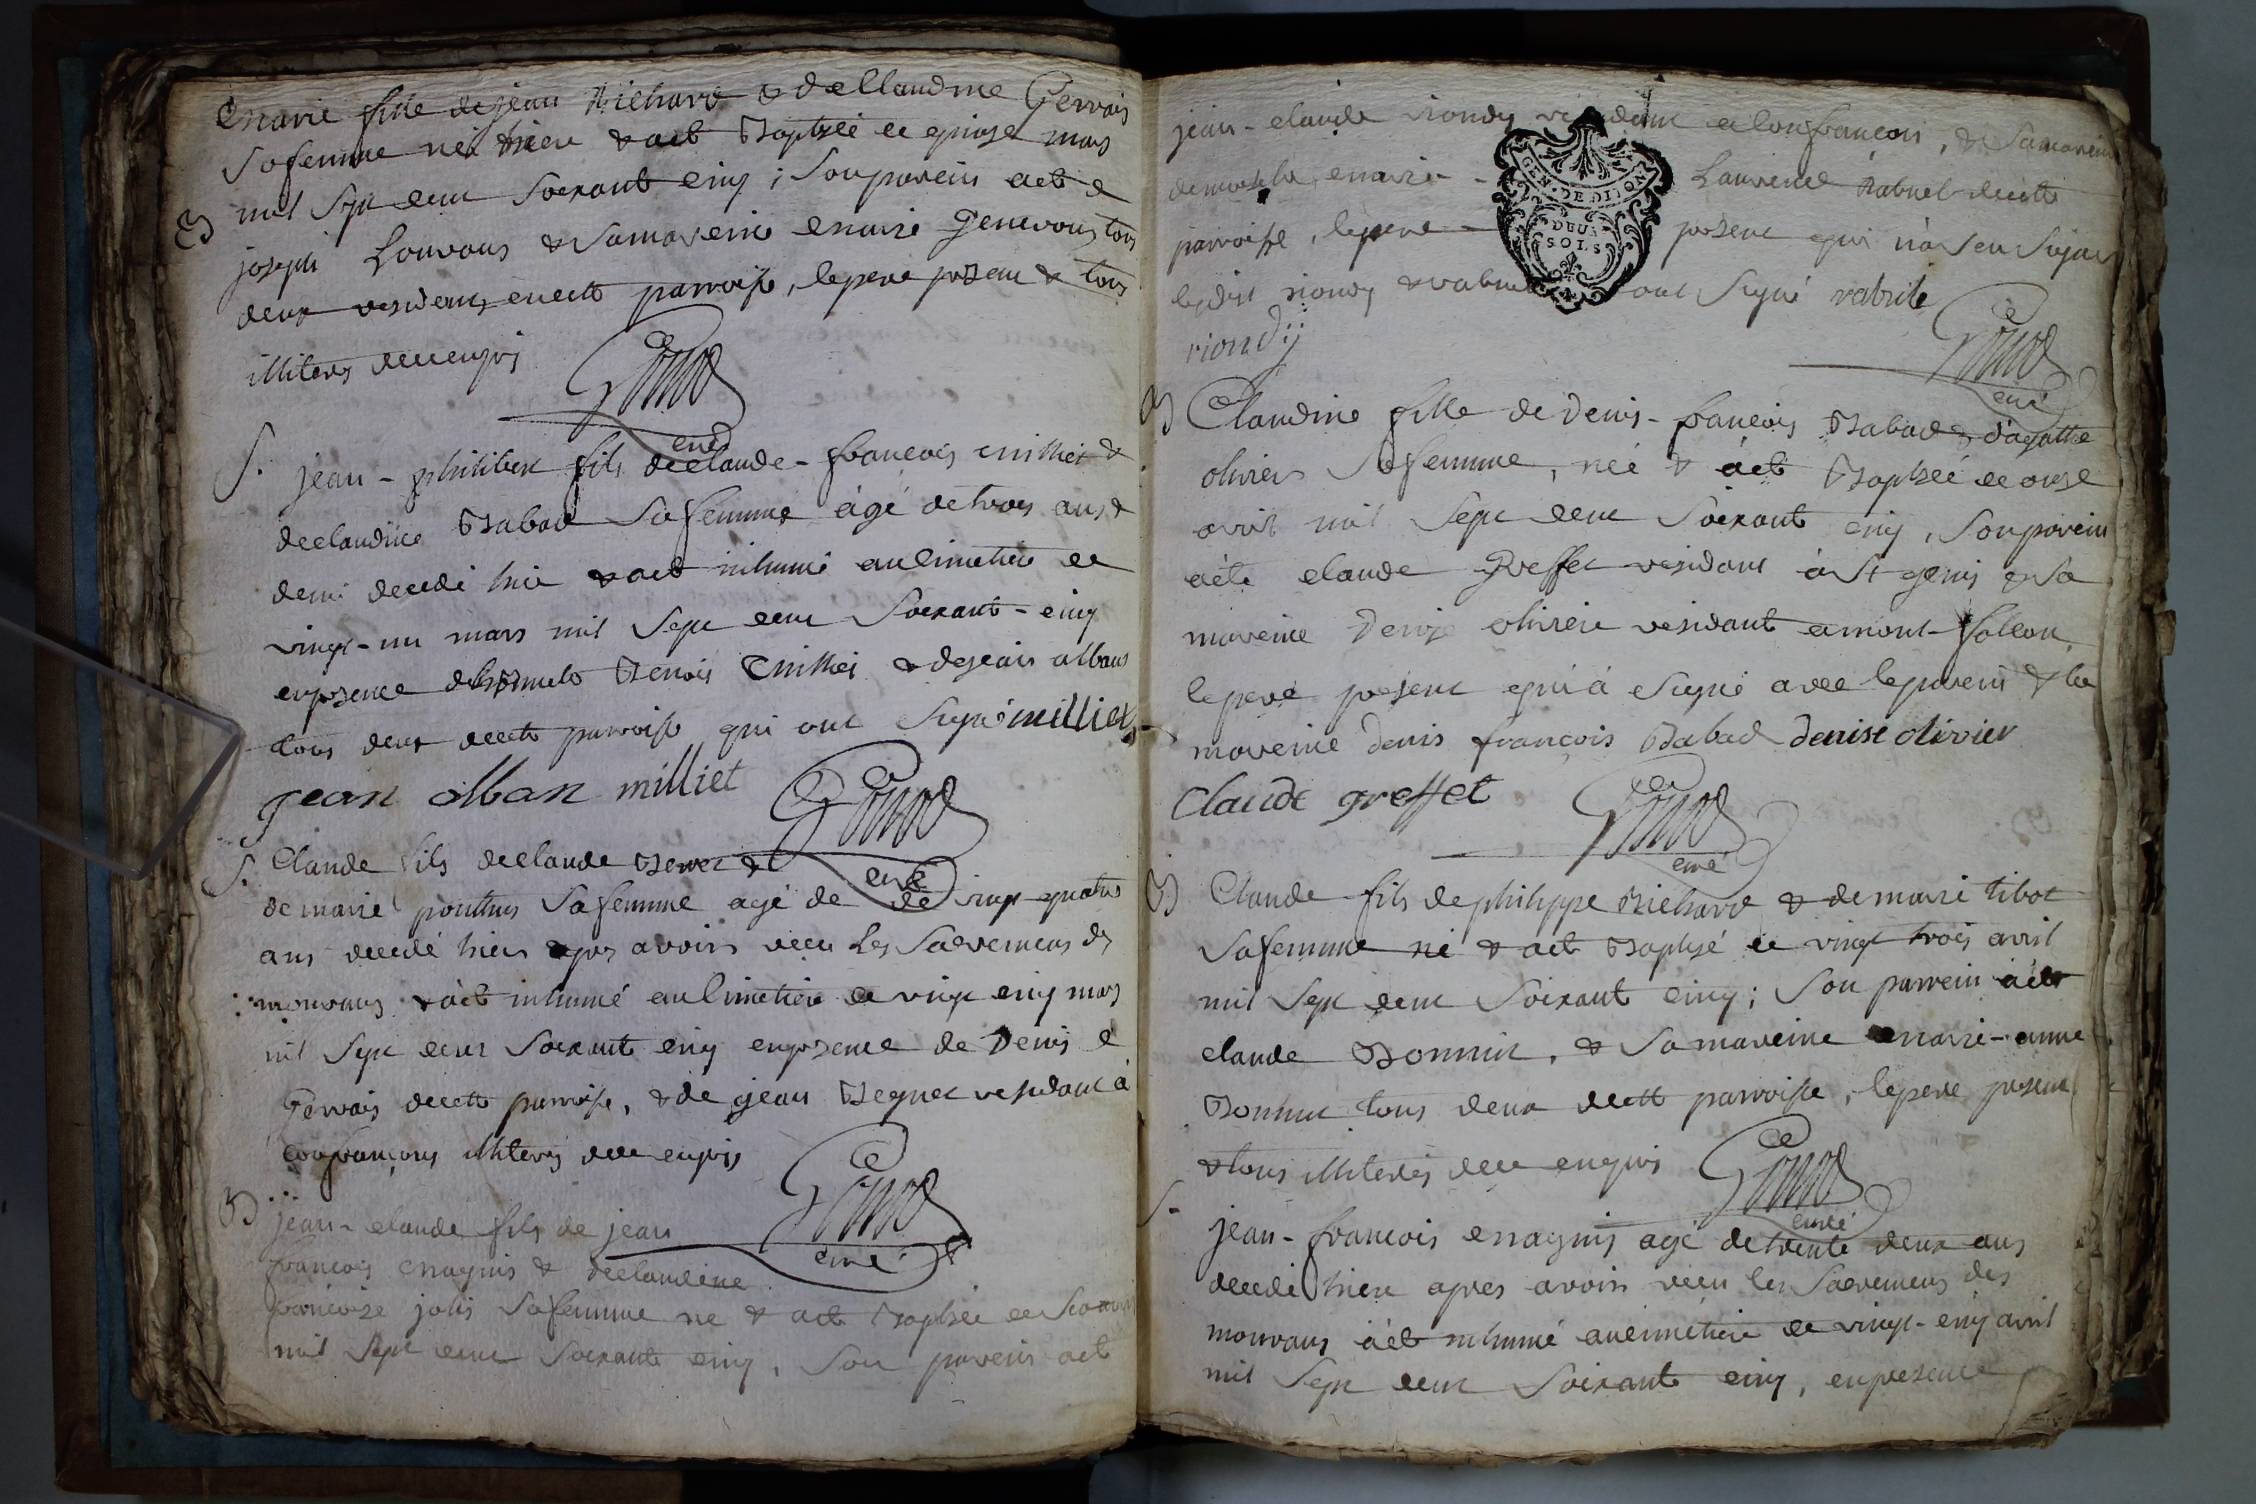 marie fille de jean Richard & de Claudine Gervais
sa femme née hier & a été Baptisée le quinze mars
B mil sept cent soixante cinq ; son parein a été
joseph Louvous & sa mareine marie Genevous tous
deux residents en cette parroisse, le pere present & tous
illiteres de ce enquis
Girod
curé
S. jean - philibert fils de claude - francois milliet &
de claudine Babad sa femme agé de trois ans &
demi decedé hier & a été inhumé au Cimetiere le
vingt - un mars mil sept cent soixante - cinq
en presence de Benois milliet & de jean alban
tous deux de cette parroisse qui ont signé milliet
jean alban milliet
Girod
curé
S. Claude fils de claude &
de marie ponthus sa femme agé de de vingt quatre
ans decedé hier apres avoir recu les sacremens des
mourans & a été inhumé au Cimetiere le vingt cinq mars
mil sept cent soixante cinq en presence de Denis
Gervais de cette parroisse, & de jean residant à
confrançons illiteres de ce enquis
Girod
curé
B jean - claude fils de jean
francois magnin & de claudine
francoise jolis sa femme né & a été Baptisé le
mil sept cent soixante cinq, son parein a été
jean - claude riondy residant a Confrancon, & sa mareine
demoiselle marie - Laurence rabuel de cette
parroisse, le pere - present qui n'a seu signer
lesdits riondy & rabuel ont signé rabuel
riondÿ
Girod
curé
B Claudine fille de Denis - francois Babad & d'agathe
olivier sa femme, née & a été Baptisée le onze
avril mil sept cent soixante cinq, son parein
a été claude Greffet residant à St genis & sa
mareine Denise oliviere residant a mont - falcon
le pere present qui a signé avec le parein & la
mareine denis françois Babad denise olivier
Claude greffet
Girod
curé
B Claude fils de philippe Richard & de marie tibot
sa femme né & a été Baptisé le vingt trois avril
mil sept cent soixante cinq ; son parrein a été
claude Bonnin, & sa mareine marie - anne
Bonnin tous deux de cette parroisse, le pere present
& tous illiteres de ce enquis
Girod
curé
S. jean - francois magnin agé de trente deux ans
decedé hier apres avoir recu les sacremens des
mourans a été inhumé au cimetiere le vingt - cinq avril
mil sept cent soixante cinq, en presence
GEN. DE DIJON
DEUX
SOLS